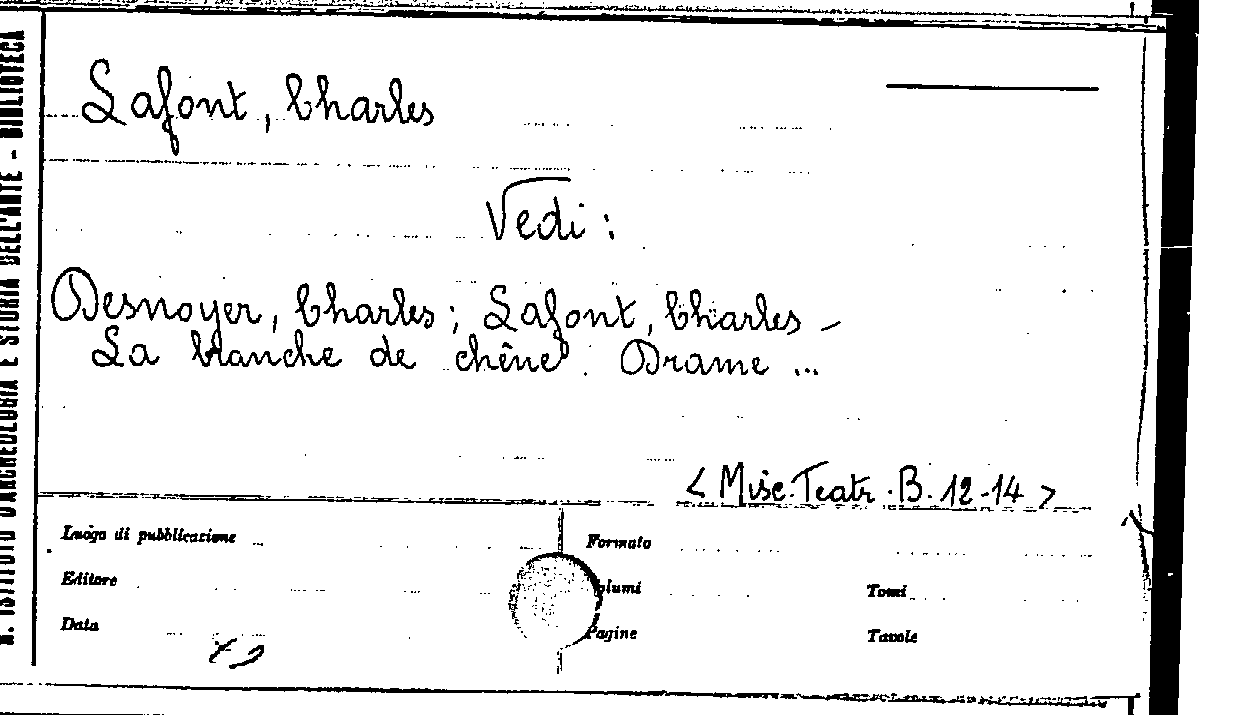 R. ISTITUTO D'ARCHEOLOGIA E STORIA DELL'ARTE - BIBLIOTECA
Lafont, Charles
Vedi:
Desnoyer, Charles; Lafont, Charles -
La branche de chêne. Drame ...
< Misc. Teatr. B. 12-14 >
Luogo di pubblicazione
Formato
Editore
Volumi
Tomi
Data
Pagine
Tavole